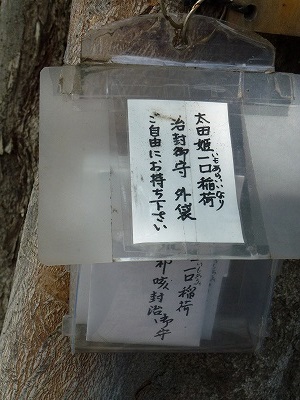 太田姫一口稲荷
いもあらいいなり
治封御守 外袋
ご自由にお持ち下さい
一口稲荷
咳封治御守